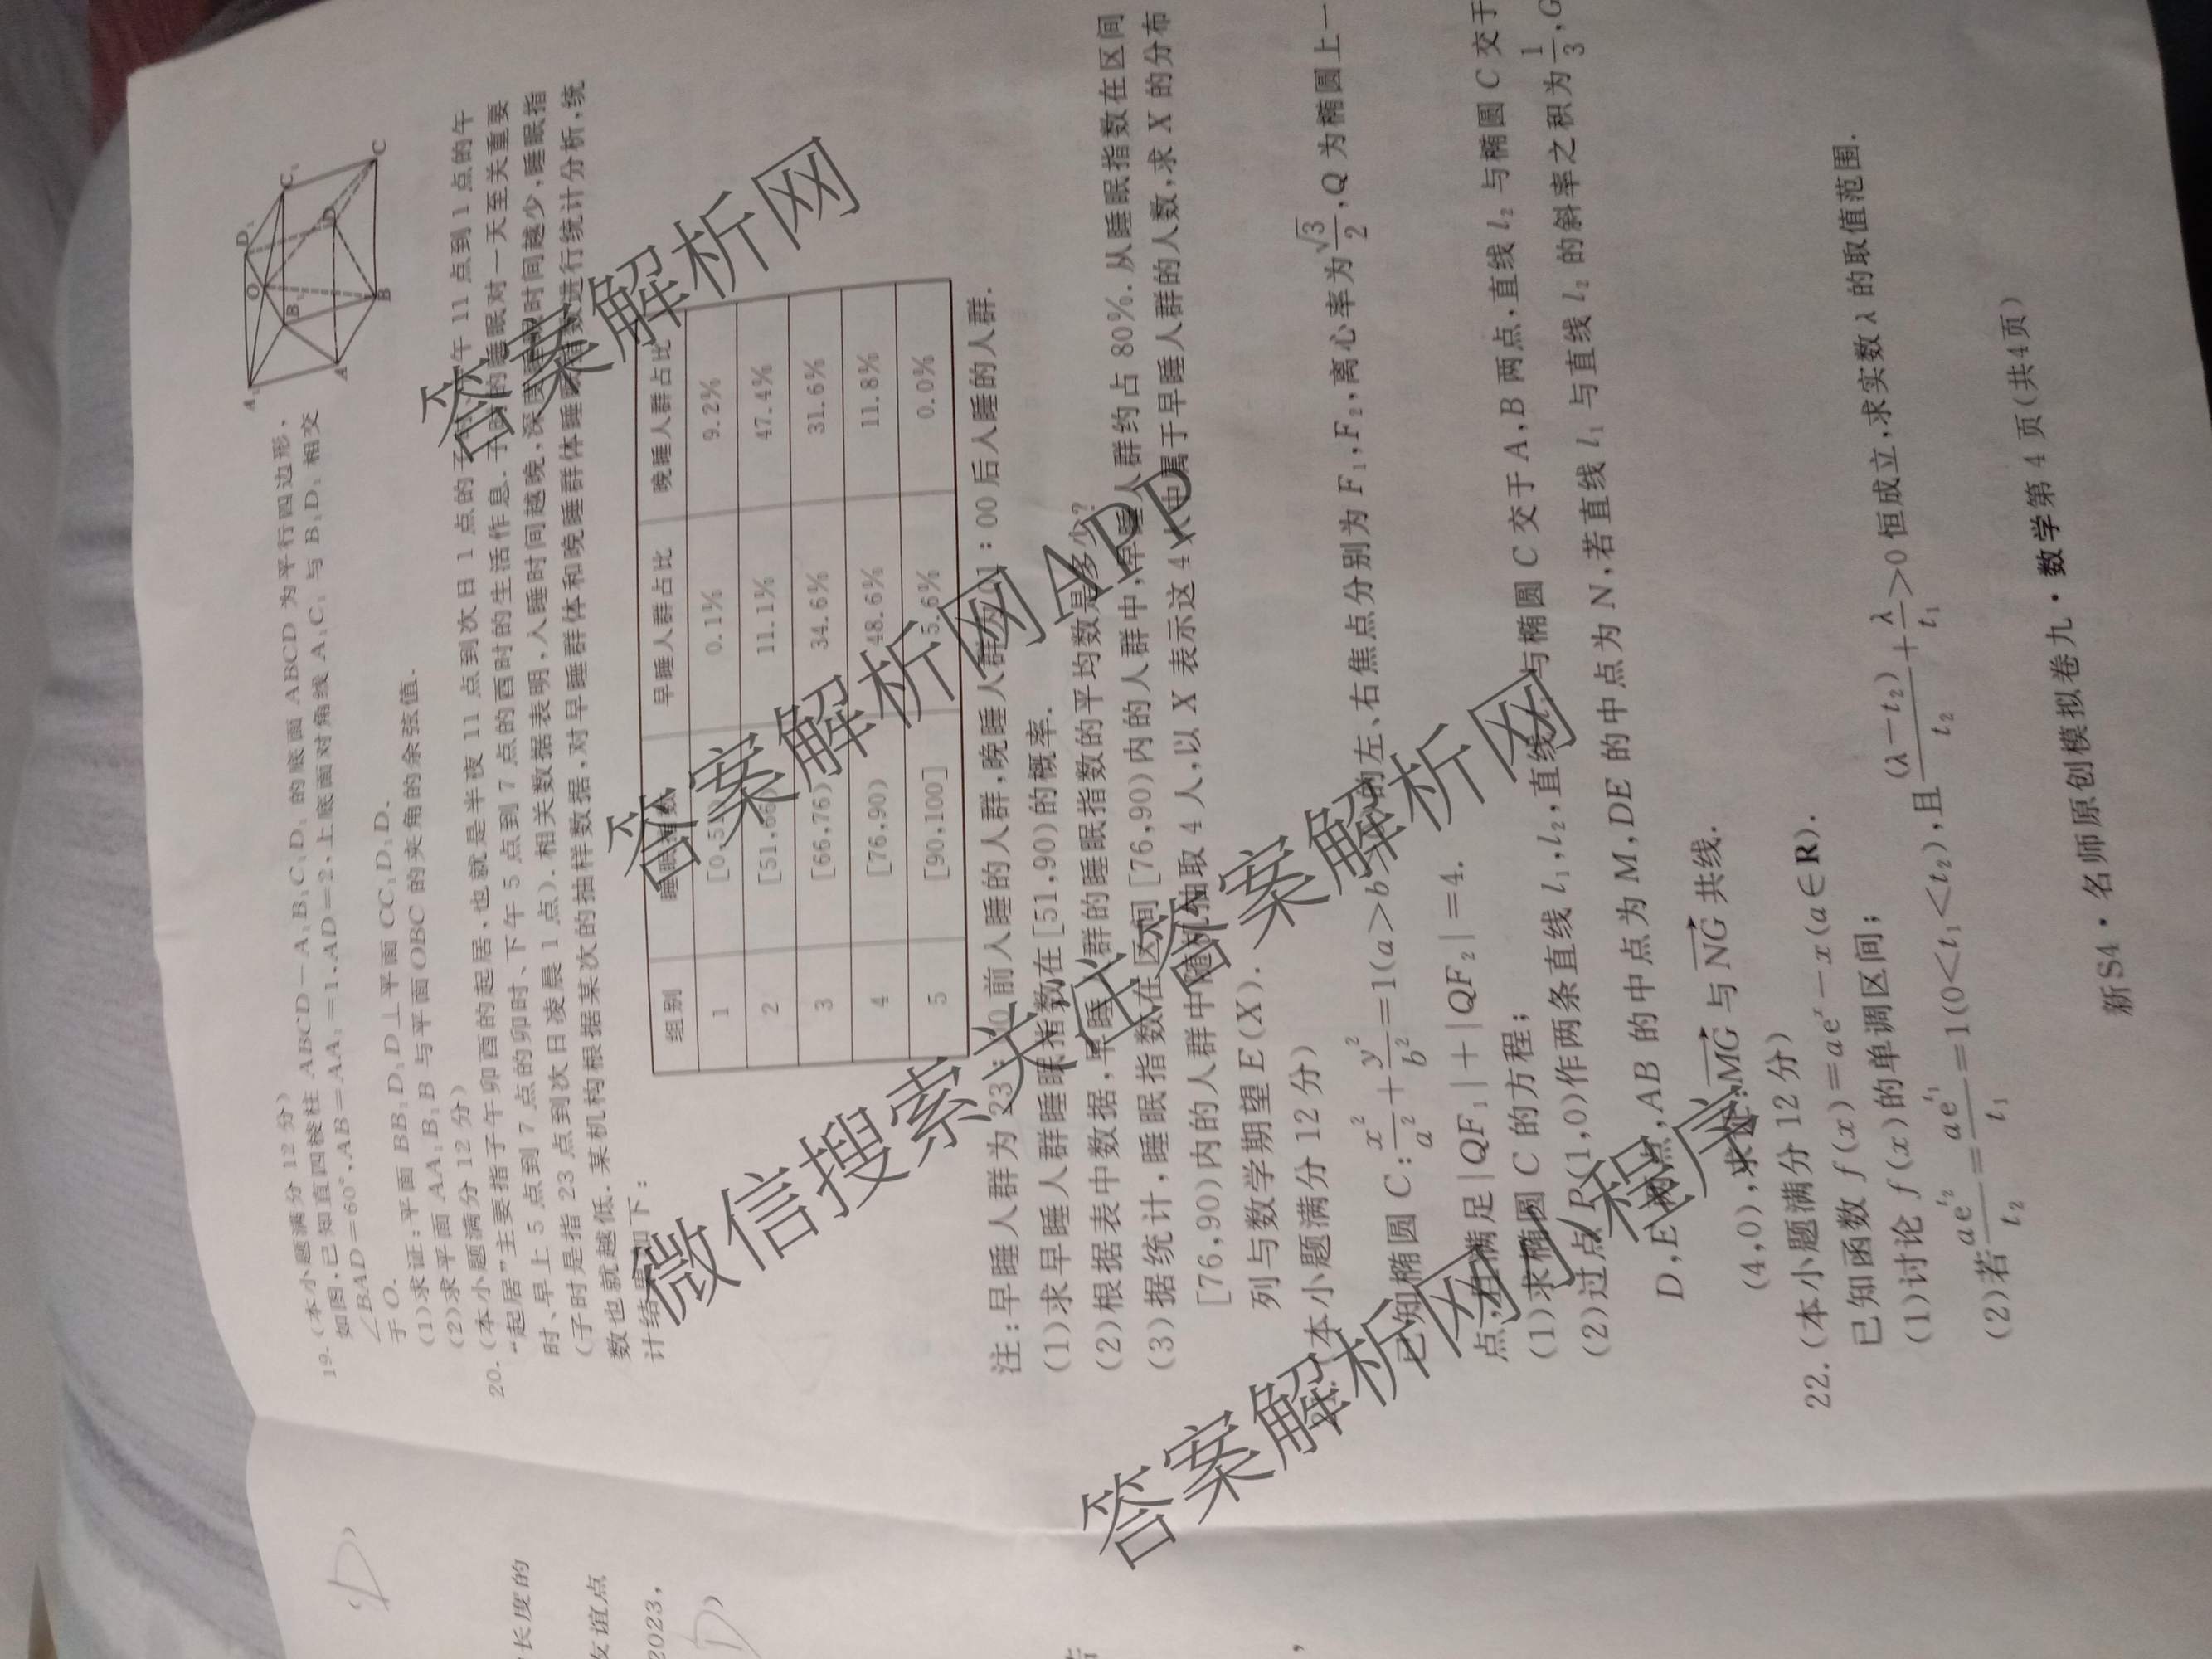 19.(本小题满分12分)
如图,已知直四棱柱ABCD-A₁B₁C₁D₁的底面ABCD为平行四边形,
∠BAD=60°,AB=AA₁=1,AD=2,上底面对角线A₁C₁与B₁D₁相交
于O.
(1)求证:平面BB₁D₁D⊥平面CC₁D₁D.
(2)求平面AA₁B₁B与平面OBC的夹角的余弦值.
A₁ O D₁ B₁ C₁ A D B C
20.(本小题满分12分)
“起居”主要指子午卯酉的起居,也就是半夜11点到次日1点的子 午11点到1点的午
时、早上5点到7点的卯时、下午5点到7点的酉时的生活作息. 的睡眠对一天至关重要
(子时是指23点到次日凌晨1点).相关数据表明,入睡时间越晚,深度 时间越少,睡眠指
数也就越低.某机构根据某次的抽样数据,对早睡群体和晚睡群体睡 数进行统计分析,统
计结果如下:
组别 睡眠指数 早睡人群占比 晚睡人群占比
1 [0,51) 0.1% 9.2%
2 [51,66) 11.1% 47.4%
3 [66,76) 34.6% 31.6%
4 [76,90) 48.6% 11.8%
5 [90,100] 5.6% 0.0%
注:早睡人群为23:00前入睡的人群,晚睡人群为 1:00后入睡的人群.
(1)求早睡人群睡眠指数在[51,90)的概率.
(2)根据表中数据,早睡人群的睡眠指数的平均数是多少?
(3)据统计,睡眠指数在区间[76,90)内的人群中,早睡人群约占80%.从睡眠指数在区间
[76,90)内的人群中随机抽取4人,以X表示这4人中属于早睡人群的人数,求X的分布
列与数学期望E(X).
21.(本小题满分12分)
已知椭圆C:x²/a²+y²/b²=1(a>b>0)的左、右焦点分别为F₁,F₂,离心率为√3/2,Q为椭圆上一
点,且满足|QF₁|+|QF₂|=4.
(1)求椭圆C的方程;
(2)过点P(1,0)作两条直线l₁,l₂,直线l₁与椭圆C交于A,B两点,直线l₂与椭圆C交于
D,E两点,AB的中点为M,DE的中点为N,若直线l₁与直线l₂的斜率之积为1/3,G
(4,0),求证:MG与NG共线.
22.(本小题满分12分)
已知函数f(x)=aeˣ-x(a∈R).
(1)讨论f(x)的单调区间;
(2)若 ae^{t₂}/t₂=ae^{t₁}/t₁=1(0<t₁<t₂),且(λ-t₂)/t₂+λ/t₁>0恒成立,求实数λ的取值范围.
新S4·名师原创模拟卷九·数学第4页(共4页)
长度的
友谊点
2023,
D)
D)
答案解析网
答案解析网APP
微信搜索关注答案解析网
答案解析网小程序